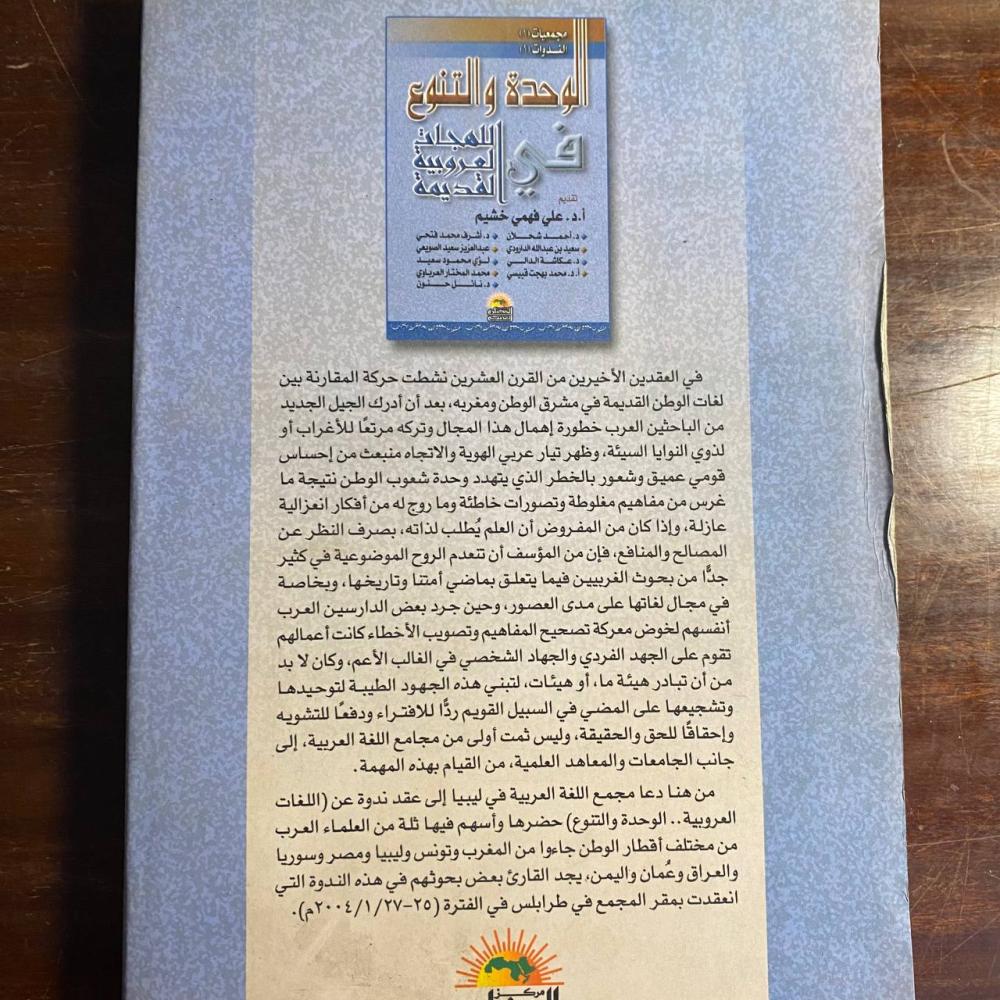 مجمعيات (١)
الندوات (١)
الوحدة والتنوع
في اللهجات
العروبية
القديمة
تقديم
أ.د. علي فهمي خشيم
د. أحمد شحلان
د. أشرف محمد فتحي
سعيد بن عبدالله الدارودي
عبدالعزيز سعيد الصويعي
د. عكاشة الدالي
لؤي محمود سعيد
أ.د. محمد بهجت قبيسي
محمد المختار العرباوي
د. نائل حنون
في العقدين الأخيرين من القرن العشرين نشطت حركة المقارنة بين
لغات الوطن القديمة في مشرق الوطن ومغربه، بعد أن أدرك الجيل الجديد
من الباحثين العرب خطورة إهمال هذا المجال وتركه مرتعًا للأغراب أو
لذوي النوايا السيئة، وظهر تيار عربي الهوية والاتجاه منبعث من إحساس
قومي عميق وشعور بالخطر الذي يتهدد وحدة شعوب الوطن نتيجة ما
غرس من مفاهيم مغلوطة وتصورات خاطئة وما روج له من أفكار انعزالية
عازلة، وإذا كان من المفروض أن العلم يُطلب لذاته، بصرف النظر عن
المصالح والمنافع، فإن من المؤسف أن تنعدم الروح الموضوعية في كثير
جدًّا من بحوث الغربيين فيما يتعلق بماضي أمتنا وتاريخها، وبخاصة
في مجال لغاتها على مدى العصور، وحين جرد بعض الدارسين العرب
أنفسهم لخوض معركة تصحيح المفاهيم وتصويب الأخطاء كانت أعمالهم
تقوم على الجهد الفردي والجهاد الشخصي في الغالب الأعم، وكان لا بد
من أن تبادر هيئة ما، أو هيئات، لتبني هذه الجهود الطيبة لتوحيدها
وتشجيعها على المضي في السبيل القويم ردًّا للافتراء ودفعًا للتشويه
وإحقاقًا للحق والحقيقة، وليس ثمت أولى من مجامع اللغة العربية، إلى
جانب الجامعات والمعاهد العلمية، من القيام بهذه المهمة.
من هنا دعا مجمع اللغة العربية في ليبيا إلى عقد ندوة عن (اللغات
العروبية.. الوحدة والتنوع) حضرها وأسهم فيها ثلة من العلماء العرب
من مختلف أقطار الوطن جاءوا من المغرب وتونس وليبيا ومصر وسوريا
والعراق وعُمان واليمن، يجد القارئ بعض بحوثهم في هذه الندوة التي
انعقدت بمقر المجمع في طرابلس في الفترة (٢٥-٢٠٠٤/١/٢٧م).
مركز